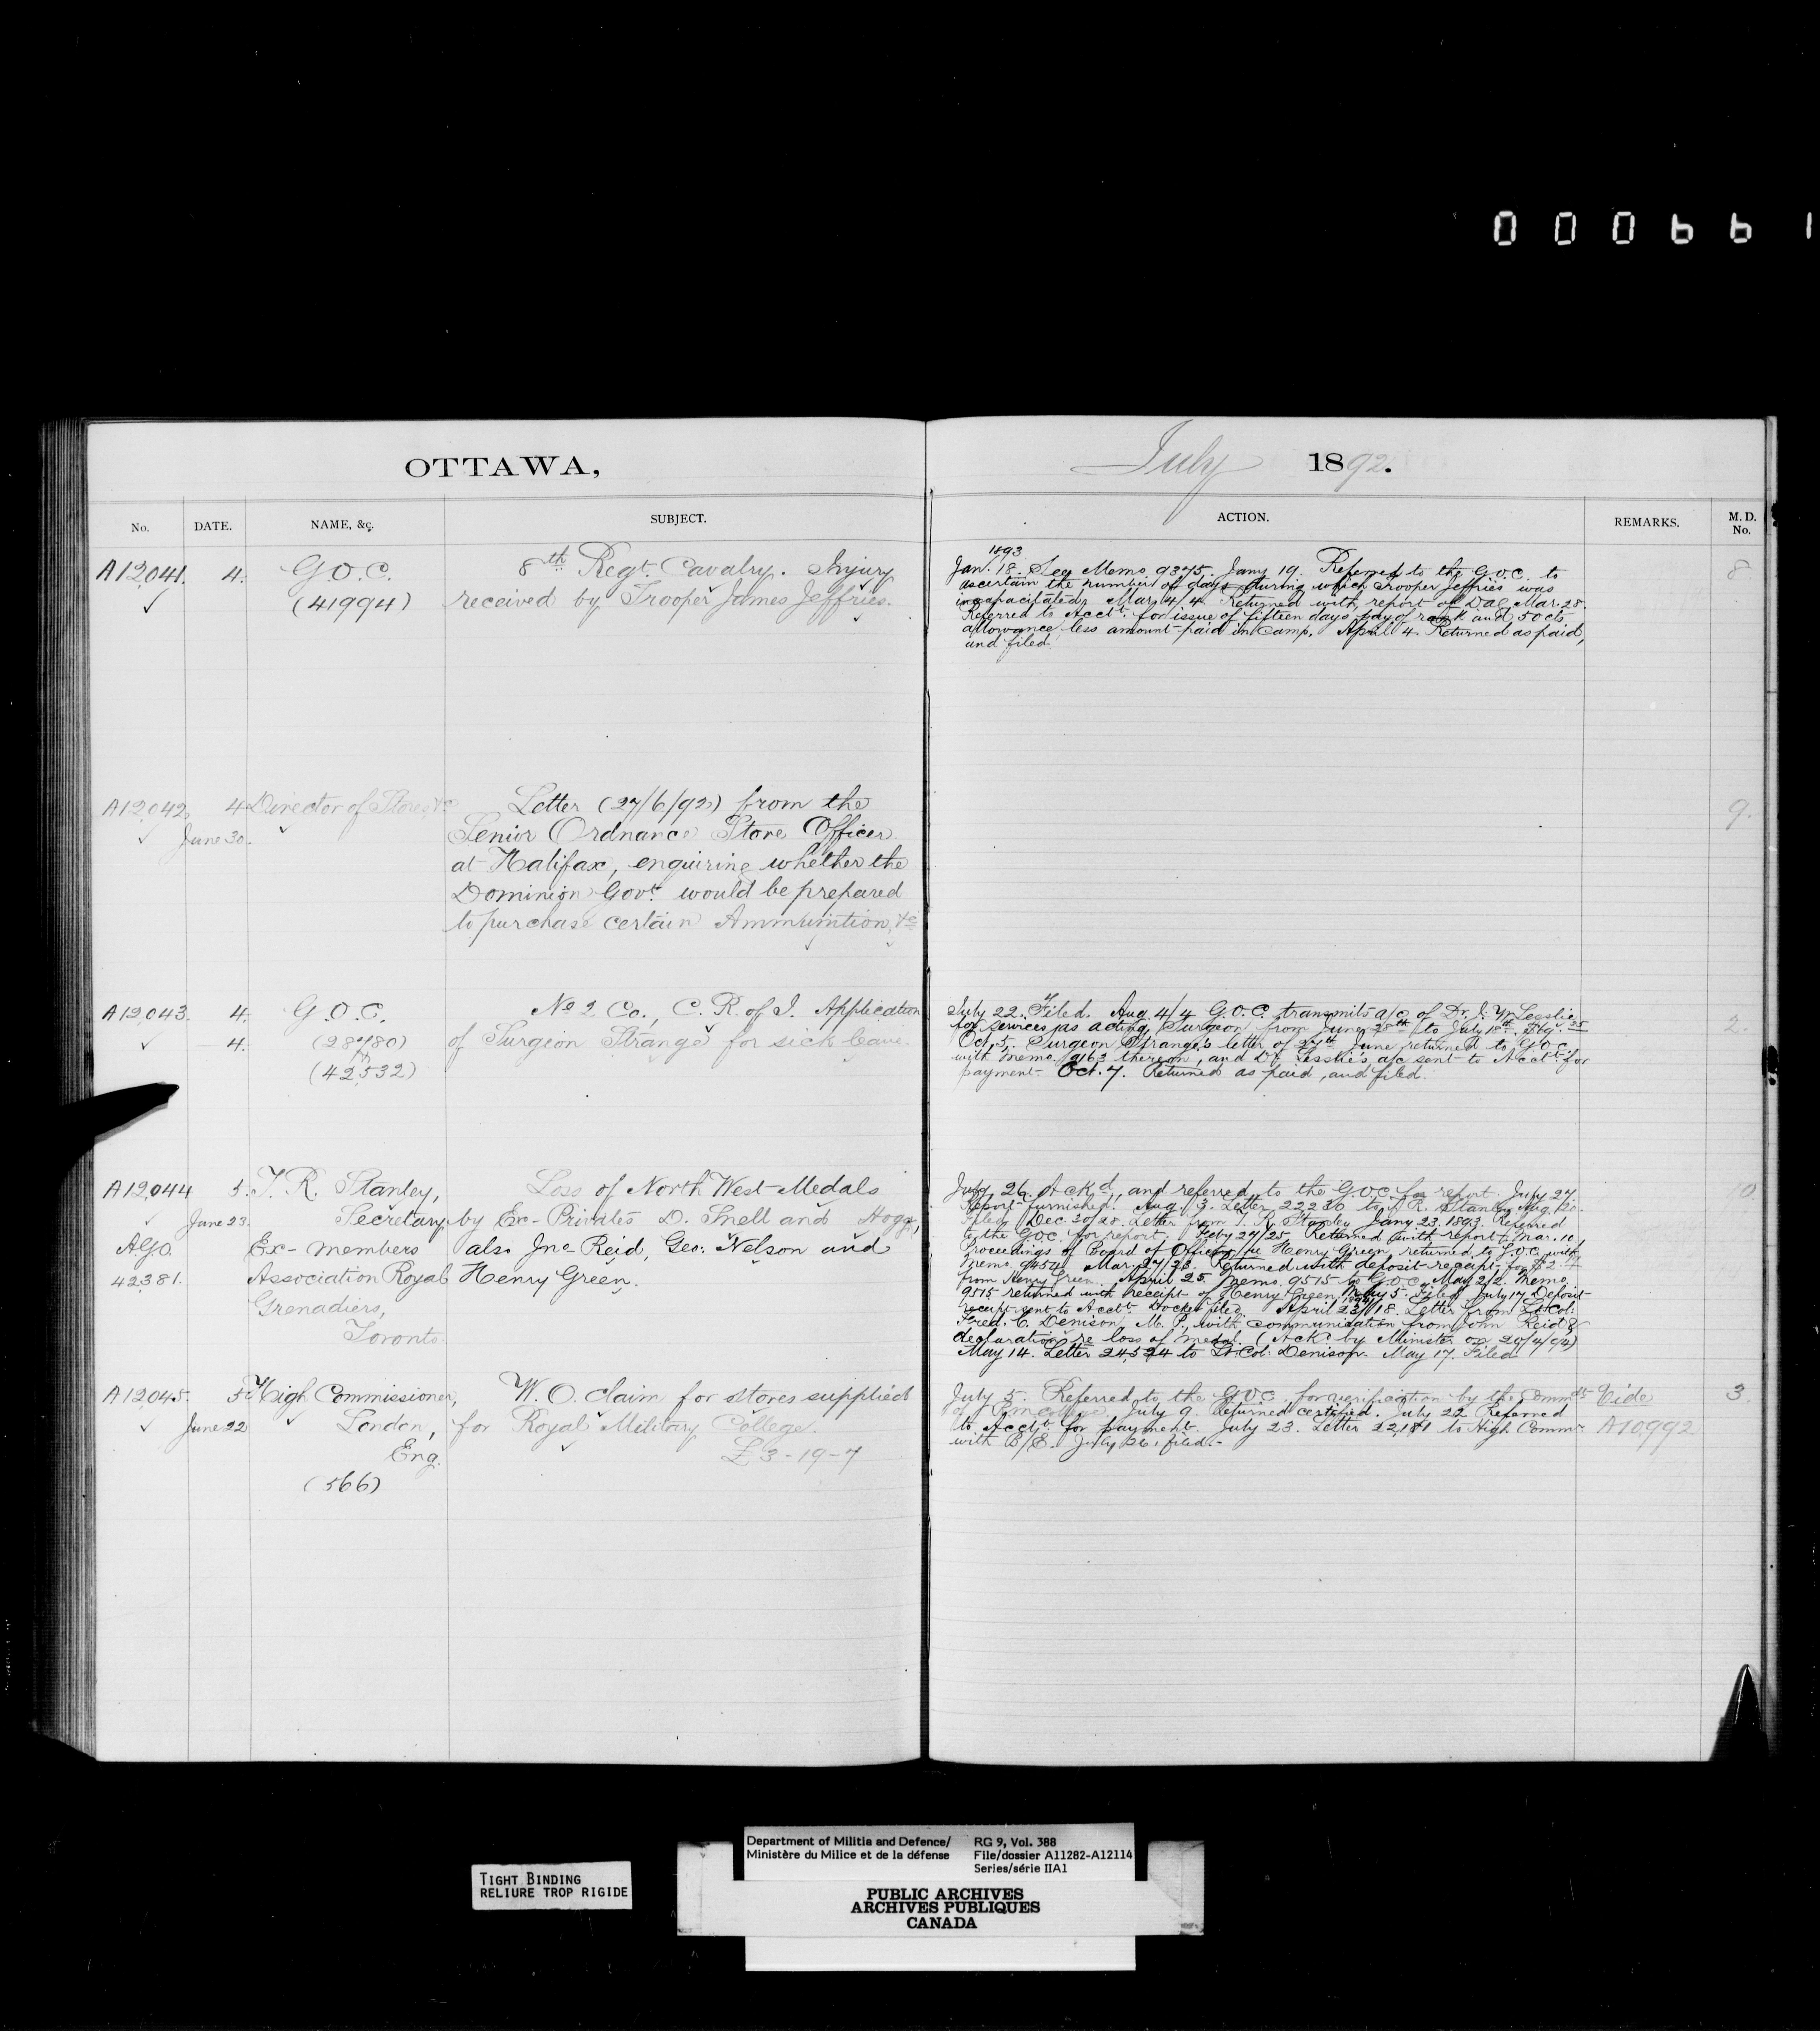 000661
OTTAWA,
July 1892.
No. DATE. NAME, &c. SUBJECT. ACTION. REMARKS. M. D. No.
A12041. 4. G.O.C. 8th Regt. Cavalry. Injury
(41994) received by Trooper James Jeffries.
1893
Jan. 18. See Memo 9375. Jany 19. Referred to the G.O.C. to
ascertain the number of days during which Trooper Jeffries was
incapacitated. Mar 4/4 Returned with report of DAG. Mar. 28.
Referred to Acctt. for issue of fifteen days pay of rank and 50 cts
allowance, less amount paid in Camp. April 4. Returned as paid,
and filed.
8
A12042. 4. Director of Stores, &c Letter (27/6/92) from the
June 30. Senior Ordnance Store Officer
at Halifax, enquiring whether the
Dominion Govt. would be prepared
to purchase certain Ammunition, &c
9.
A12043. 4. G.O.C. No 2 Co., C. R. of I. Application
4. (28780) of Surgeon Strange for sick leave.
(42532)
July 22. Filed. Aug. 4/4 G.O.C. transmits a/c of Dr. J. W. Lesslie
for services as acting Surgeon from June 28th to July 18th
Oct. 5. Surgeon Strange's letter of 27th June returned to G.O.C.
with memo. 9163 thereon, and Dr. Lesslie's a/c sent to Acctt. for
payment. Oct. 7. Returned as paid, and filed.
2.
A12044 5. T. R. Stanley, Loss of North West Medals
June 23. Secretary by Ex-Privates D. Snell and Hogg,
A.G.O. Ex-members also Jno Reid, Geo: Nelson and
42381. Association Royal Henry Green.
Grenadiers,
Toronto.
July 26. Ackd., and referred to the G.O.C. for report. July 27.
Report furnished. Aug. 3. Letter 22236 to T. R. Stanley. Aug. 20.
Filed. Dec. 30/28. Letter from T. R. Stanley. Jany 23. 1893. Referred
to the G.O.C. for report. Feby 27/25 Returned with report. Mar. 10.
Proceedings of Board of Officers, re Henry Green, returned to G.O.C. with
memo. 9454. Mar. 27/23. Returned with deposit receipt for $2
from Henry Green. April 25. Memo. 9515 to G.O.C. May 2/2. Memo.
9515 returned with receipt of Henry Green. May 5. Filed. July 17. Deposit
receipt sent to Acctt. Docket filed. 1894 April 23/18. Letter from Lt. Col:
Fred. C. Denison, M. P., with communication from John Reid &
declaration re loss of medal. (Ackd. by Minister on 20/4/94)
May 14. Letter 24524 to Lt. Col: Denison. May 17. Filed
10.
A12045. 5. High Commissioner, W. O. claim for stores supplied
June 22 London, for Royal Military College.
Eng. £3-19-7
(566)
July 5. Referred to the G.O.C. for verification by the Commdt
of R.M. College. July 9. Returned certified. July 22 Referred
to Acctt. for payment. July 23. Letter 22181 to High Commr
with B/E. July 26, filed.
Vide
A10992
3.
TIGHT BINDING
RELIURE TROP RIGIDE
Department of Militia and Defence/
Ministère du Milice et de la défense
RG 9, Vol. 388
File/dossier A11282-A12114
Series/série IIA1
PUBLIC ARCHIVES
ARCHIVES PUBLIQUES
CANADA